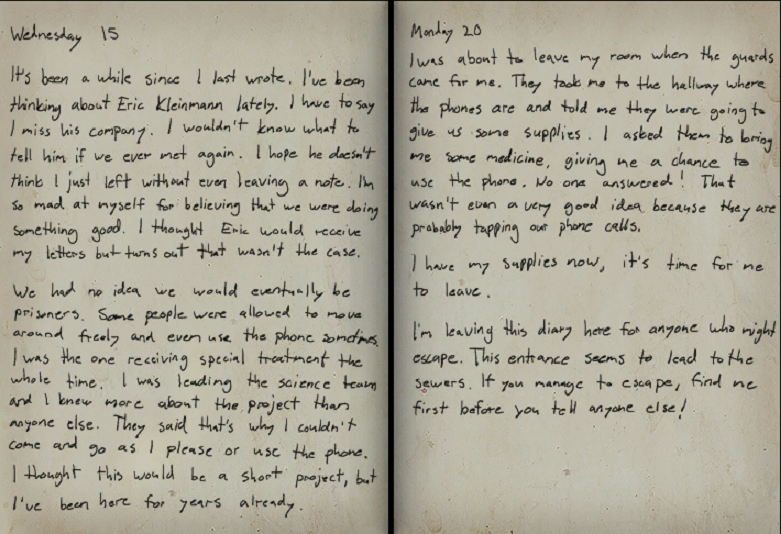 Wednesday 15
It's been a while since I last wrote. I've been
thinking about Eric Kleinmann lately. I have to say
I miss his company. I wouldn't know what to
tell him if we ever met again. I hope he doesn't
think I just left without even leaving a note. I'm
so mad at myself for believing that we were doing
something good. I thought Eric would receive
my letters but turns out that wasn't the case.
We had no idea we would eventually be
prisoners. Some people were allowed to move
around freely and even use the phone sometimes.
I was the one receiving special treatment the
whole time. I was leading the science team
and I knew more about the project than
anyone else. They said that's why I couldn't
come and go as I please or use the phone.
I thought this would be a short project, but
I've been here for years already.
Monday 20
I was about to leave my room when the guards
came for me. They took me to the hallway where
the phones are and told me they were going to
give us some supplies. I asked them to bring
me some medicine, giving me a chance to
use the phone. No one answered! That
wasn't even a very good idea because they are
probably tapping our phone calls.
I have my supplies now, it's time for me
to leave.
I'm leaving this diary here for anyone who might
escape. This entrance seems to lead to the
sewers. If you manage to escape, find me
first before you tell anyone else!